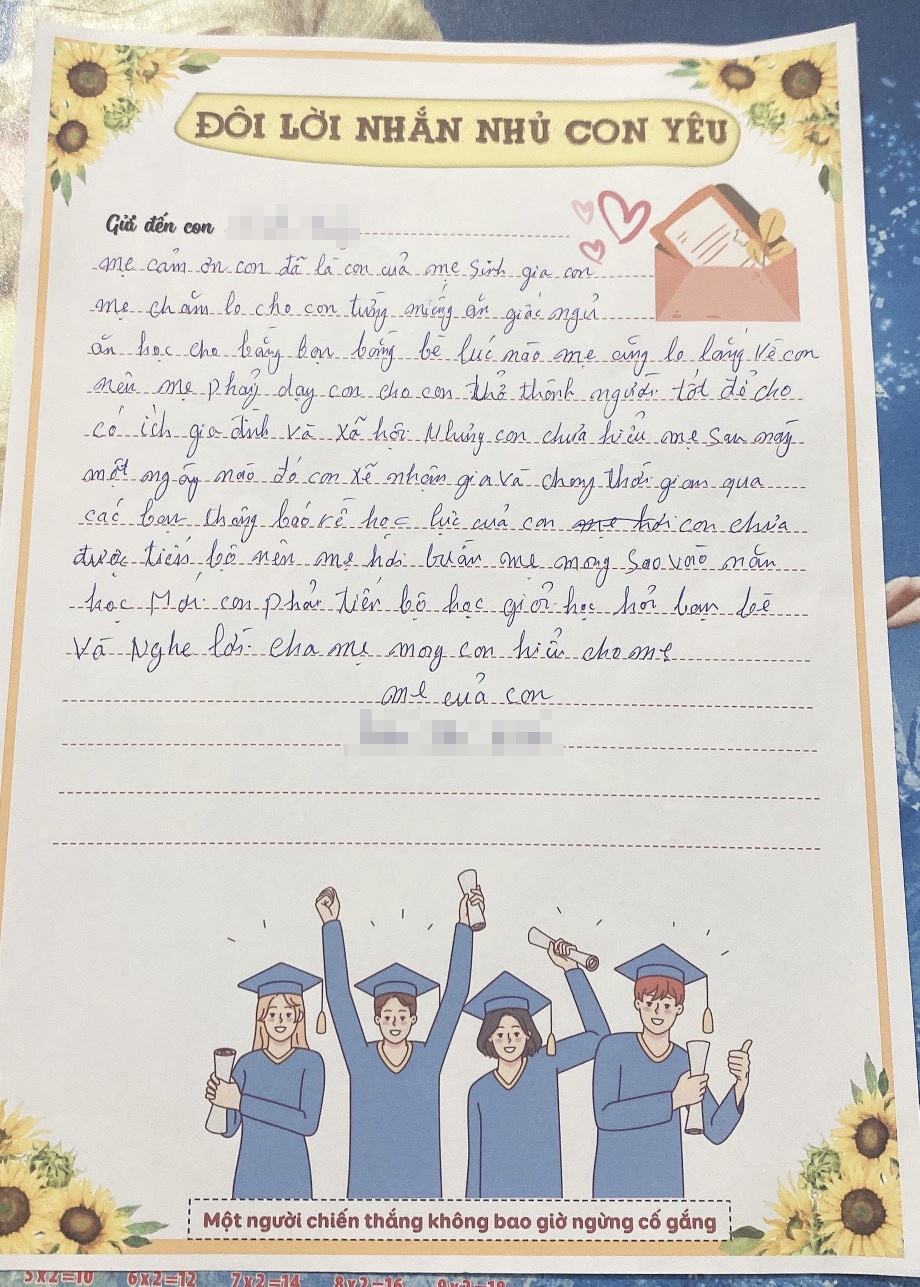 ĐÔI LỜI NHẮN NHỦ CON YÊU
Gửi đến con
mẹ cảm ơn con đã là con của mẹ sinh gia con
mẹ chăm lo cho con từng miếng ăn giấc ngủ
ăn học cho bằng bạn bằng bè lúc nào mẹ cũng lo lắng về con
nên mẹ phải dạy con cho con thở thành người tốt để cho
có ích gia đình và xã hội Nhưng con chưa hiểu mẹ sau này
một ngày nào đó con xẽ nhận gia và chong thời gian qua
các bạn thông báo về học lực của con mẹ hơi con chưa
được tiến bộ nên mẹ hơi buồn mẹ mong sao vào năn
học Mới con phải tiến bộ học giỏi học hỏi bạn bè
Và Nghe lời cha mẹ mong con hiểu cho mẹ
mẹ của con
Một người chiến thắng không bao giờ ngừng cố gắng
5x2=10 6x2=12 7x2=14 8x2=16 9x2=18